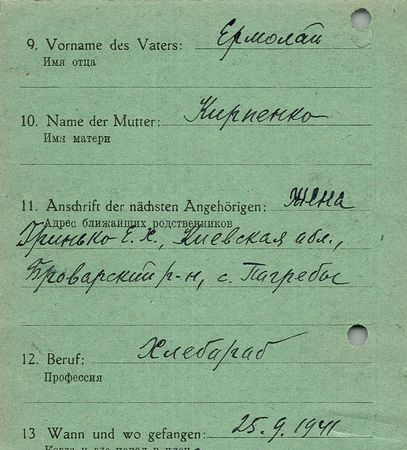 9. Vorname des Vaters: Ермолай
Имя отца
10. Name der Mutter: Кирпенко
Имя матери
11. Anschrift der nächsten Angehörigen: Жена
Адрес ближайших родственников
Гринько Е. Х., Киевская обл.,
Броварский р-н, с. Пагребы
12. Beruf: Хлебараб
Профессия
13 Wann und wo gefangen: 25. 9. 1941